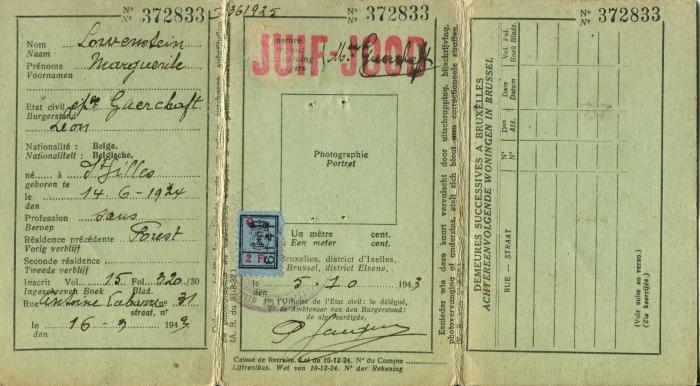 Nº
Nr 372833
Nom
Naam Lowenstein
Prénoms
Voornamen Marguerite
Etat civil épse Guerchaft
Burgerstand Léon
Nationalité : Belge.
Nationaliteit : Belgische.
né à St Gilles
geboren te
le 14-6-1924
den
Profession sans
Beroep
Résidence précédente Forest
Vorig verblijf
Seconde résidence
Tweede verblijf
Inscrit Vol. 15 Fol. 320/30
Ingeschreven Boek Blad.
Rue Antoine Labarre nº 31
straat, nr
le 16-3 1943
den
361925
Nº
Nr 372833
JUIF-JOOD
Mme Guerchaft
Photographie
Portret
2 Fr
Un mètre cent.
Een meter cent.
Bruxelles, district d'Ixelles,
Brussel, district Elsene,
le 5-10 1943
den
Pr l'Officier de l'Etat civil : le délégué,
Vr de Ambtenaar van den Burgerstand :
de afgevaardigde,
Caisse de Retraite. Loi du 10-12-24. Nº du Compte
Lijfrentkas. Wet van 10-12-24. Nr der Rekening
(A. R. du
Eenieder wie deze kaart vervalscht door uitschrapping, bijschrijving,
photovervanging of anderzins, stelt zich bloot aan correctioneele straffen.
Nº
Nr 372833
DEMEURES SUCCESSIVES A BRUXELLES
ACHTEREENVOLGENDE WONINGEN IN BRUSSEL
RUE — STRAAT
Nº
Nr
Don
Afd.
Date
Datum
Vol. Fol.
Boek Bladz.
(Voir suite au verso.)
(Zie keerzijde.)